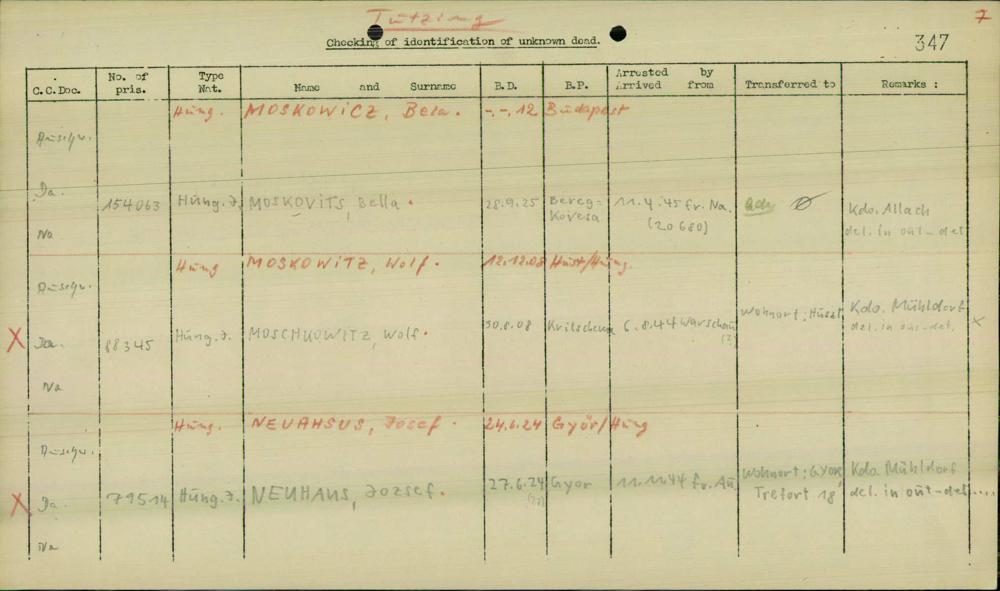 Tutzing
7
Checking of identification of unknown dead.
347
C.C.Doc. No. of pris. Type Nat. Name and Surname B.D. B.P. Arrested by Arrived from Transferred to Remarks :
Hung. MOSKOWICZ, Bela. -.-.12 Budapest
Auschw.
Da. 154063 Hung. J. MOSKOVITS, Bella. 28.9.25 Bereg= Kövesa 11.4.45 fr. Na. (20680) Kdo. Allach del. in out-det
Na
Hung MOSKOWITZ, Wolf. 12.12.08 Hust/Hung.
Auschw.
X Da. 88345 Hung. J. MOSCHKOWITZ, Wolf. 30.8.08 6.8.44 Warschau (?) Wohnort: Huszt Kdo. Mühldorf del. in out-det. X
Na
Hung. NEUAHSUS, Josef. 24.6.24 Györ/Hung
Auschw.
X Da. 79514 Hung. J. NEUHAUS, Jozsef. 27.6.24 Gyor 11.11.44 fr. Au Wohnort: Gyor, Trefort 18 Kdo. Mühldorf del. in out-det....
Na